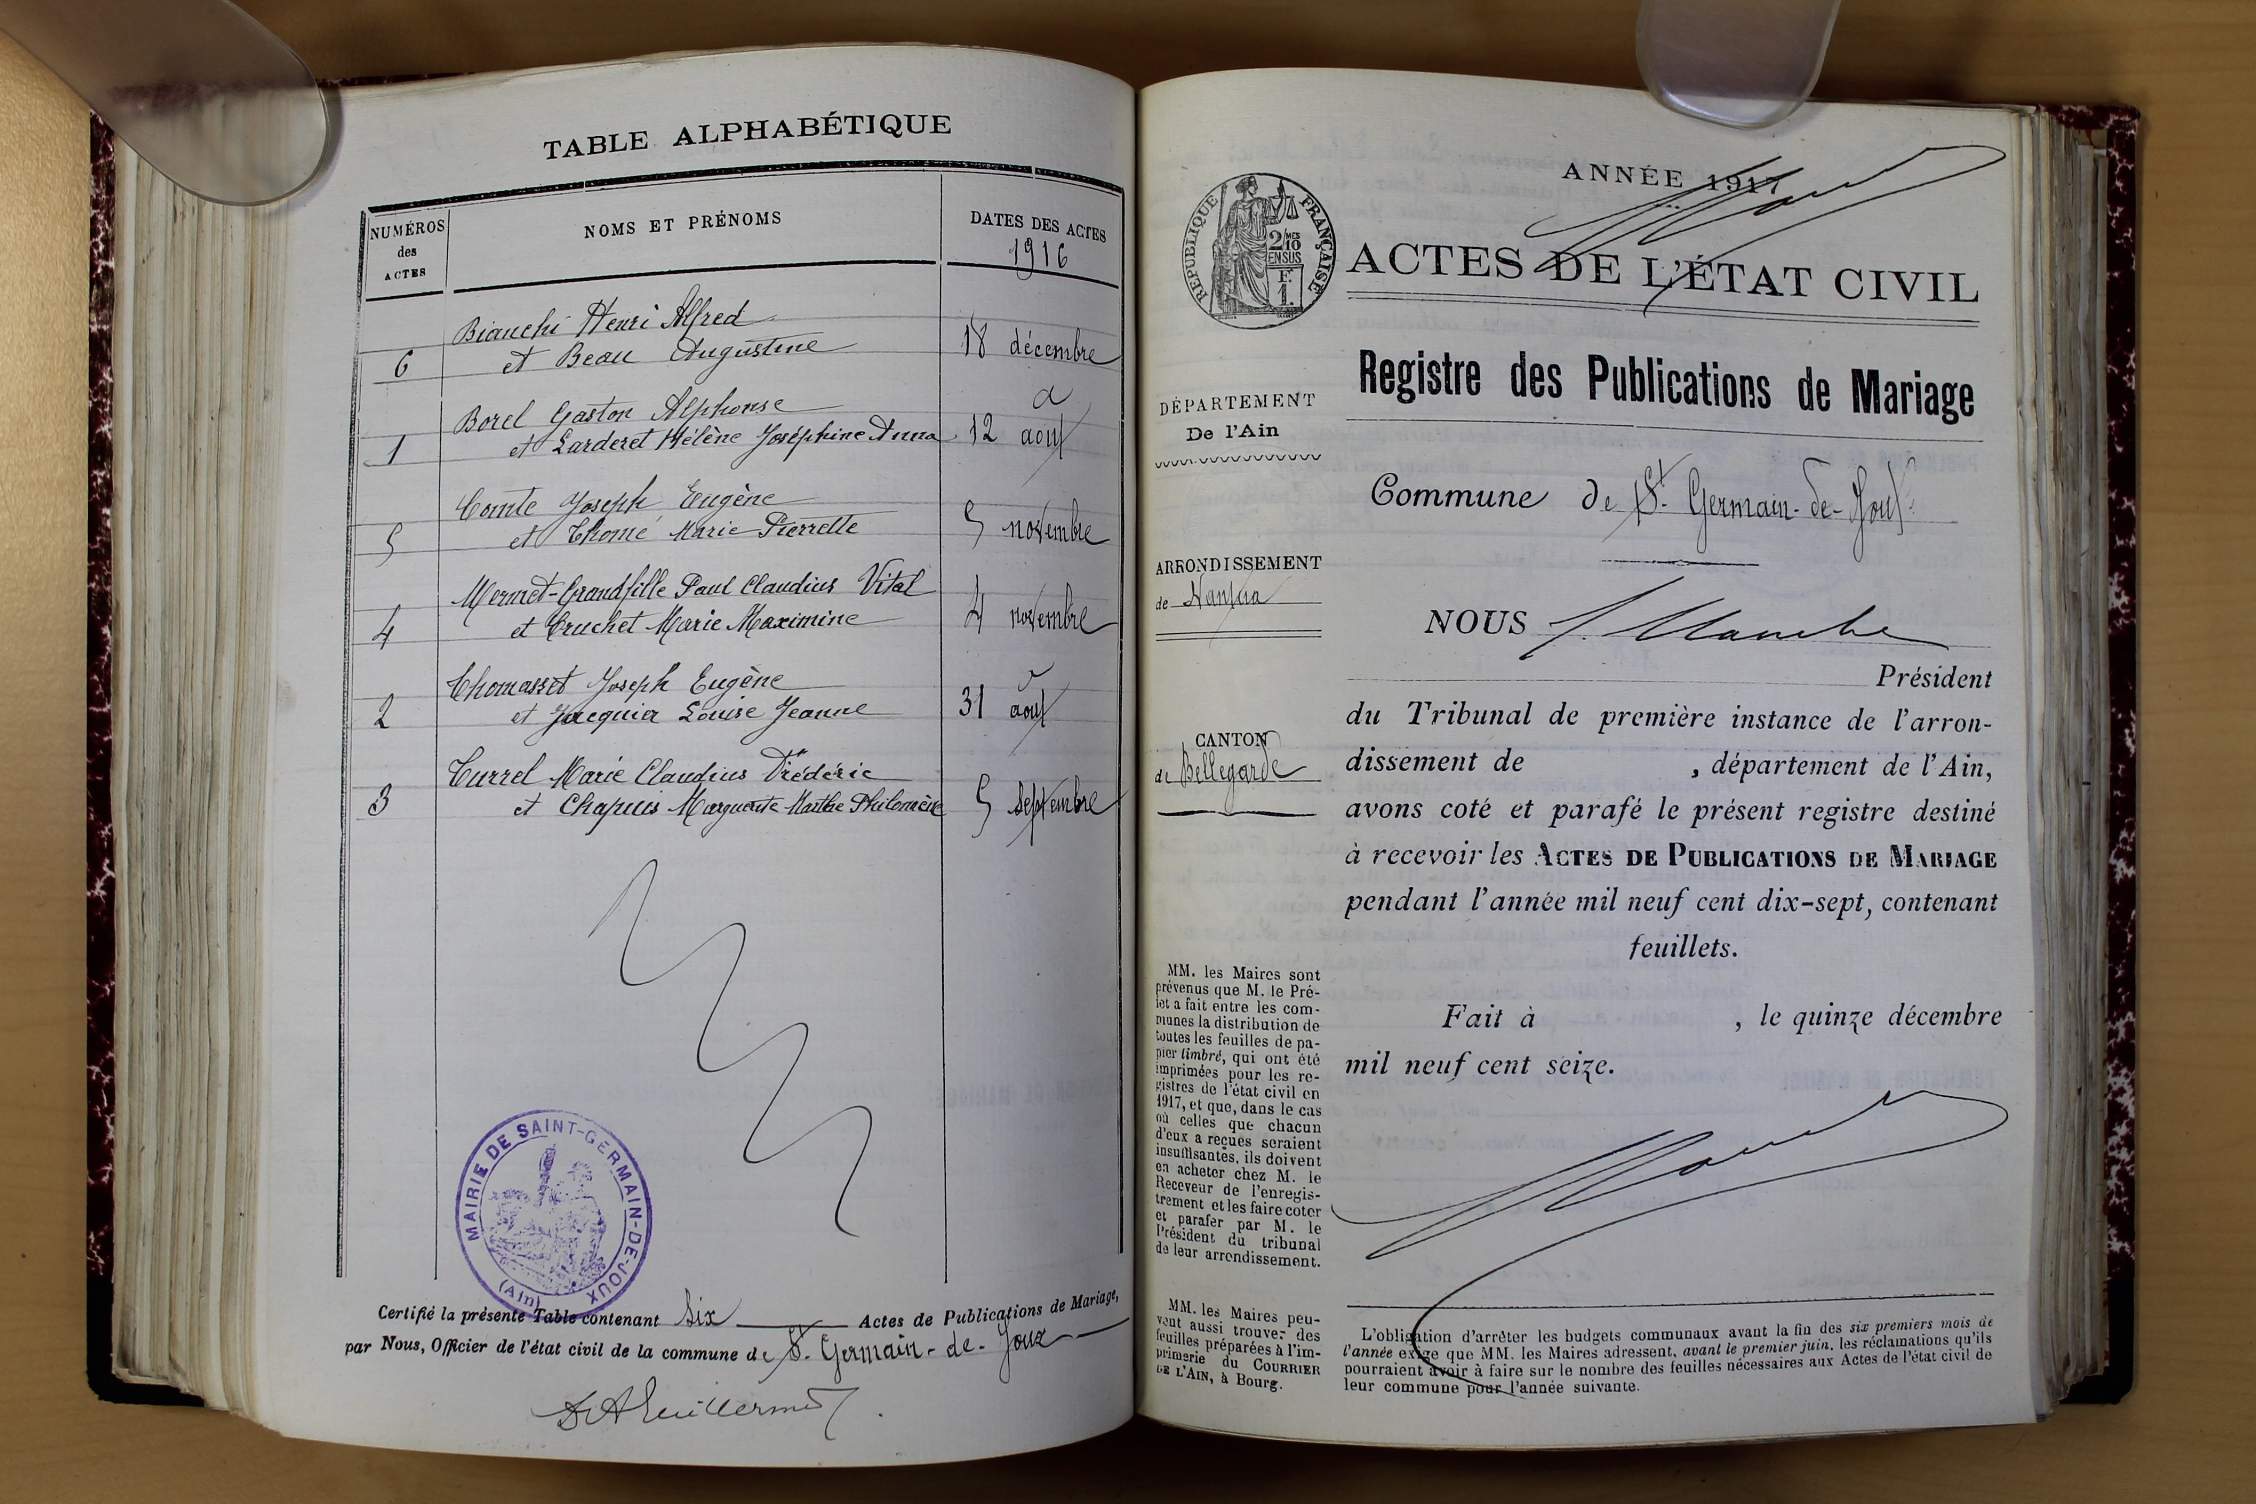 TABLE ALPHABÉTIQUE
NUMÉROS
des
ACTES
NOMS ET PRÉNOMS
DATES DES ACTES
1916
Bianchi Henri Alfred
6 et Beau Augustine 18 décembre
Borel Gaston Alphonse
1 et Larderet Hélène Joséphine Anna 12 aout
Comte Joseph Eugène
5 et Thomé Marie Pierrette 5 novembre
Mermet-Grandfille Paul Claudius Vital
4 et Cruchet Marie Maximine 4 novembre
Thomasset Joseph Eugène
2 et Jacquier Louise Jeanne 31 aout
Turrel Marie Claudius Frédéric
3 et Chapuis Marguerite Marthe Philomène 5 septembre
MAIRIE DE SAINT-GERMAIN-DE-JOUX
(Ain)
Certifié la présente Table contenant Six Actes de Publications de Mariage,
par Nous, Officier de l'état civil de la commune de St. Germain-de-Joux
ANNÉE 1917
RÉPUBLIQUE FRANÇAISE
2/MES
10
EN SUS
F.
1.
ACTES DE L'ÉTAT CIVIL
Registre des Publications de Mariage
DÉPARTEMENT
De l'Ain
Commune de St. Germain-de-Joux
ARRONDISSEMENT
de Nantua
CANTON
de Bellegarde
NOUS
Président
du Tribunal de première instance de l'arron-
dissement de , département de l'Ain,
avons coté et parafé le présent registre destiné
à recevoir les ACTES DE PUBLICATIONS DE MARIAGE
pendant l'année mil neuf cent dix-sept, contenant
feuillets.
Fait à , le quinze décembre
mil neuf cent seize.
MM. les Maires sont
prévenus que M. le Pré-
fet a fait entre les com-
munes la distribution de
toutes les feuilles de pa-
pier timbré, qui ont été
imprimées pour les re-
gistres de l'état civil en
1917, et que, dans le cas
où celles que chacun
d'eux a reçues seraient
insuffisantes, ils doivent
en acheter chez M. le
Receveur de l'enregis-
trement et les faire coter
et parafer par M. le
Président du tribunal
de leur arrondissement.
MM. les Maires peu-
vent aussi trouver des
feuilles préparées à l'im-
primerie du COURRIER
DE L'AIN, à Bourg.
L'obligation d'arrêter les budgets communaux avant la fin des six premiers mois de
l'année exige que MM. les Maires adressent, avant le premier juin, les réclamations qu'ils
pourraient avoir à faire sur le nombre des feuilles nécessaires aux Actes de l'état civil de
leur commune pour l'année suivante.